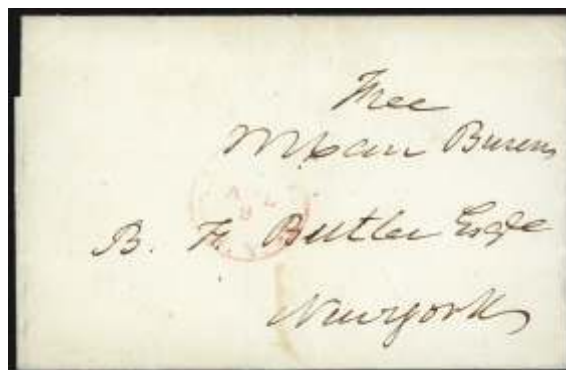 Free
MVan Buren
B. F. Butler Esqe
New york